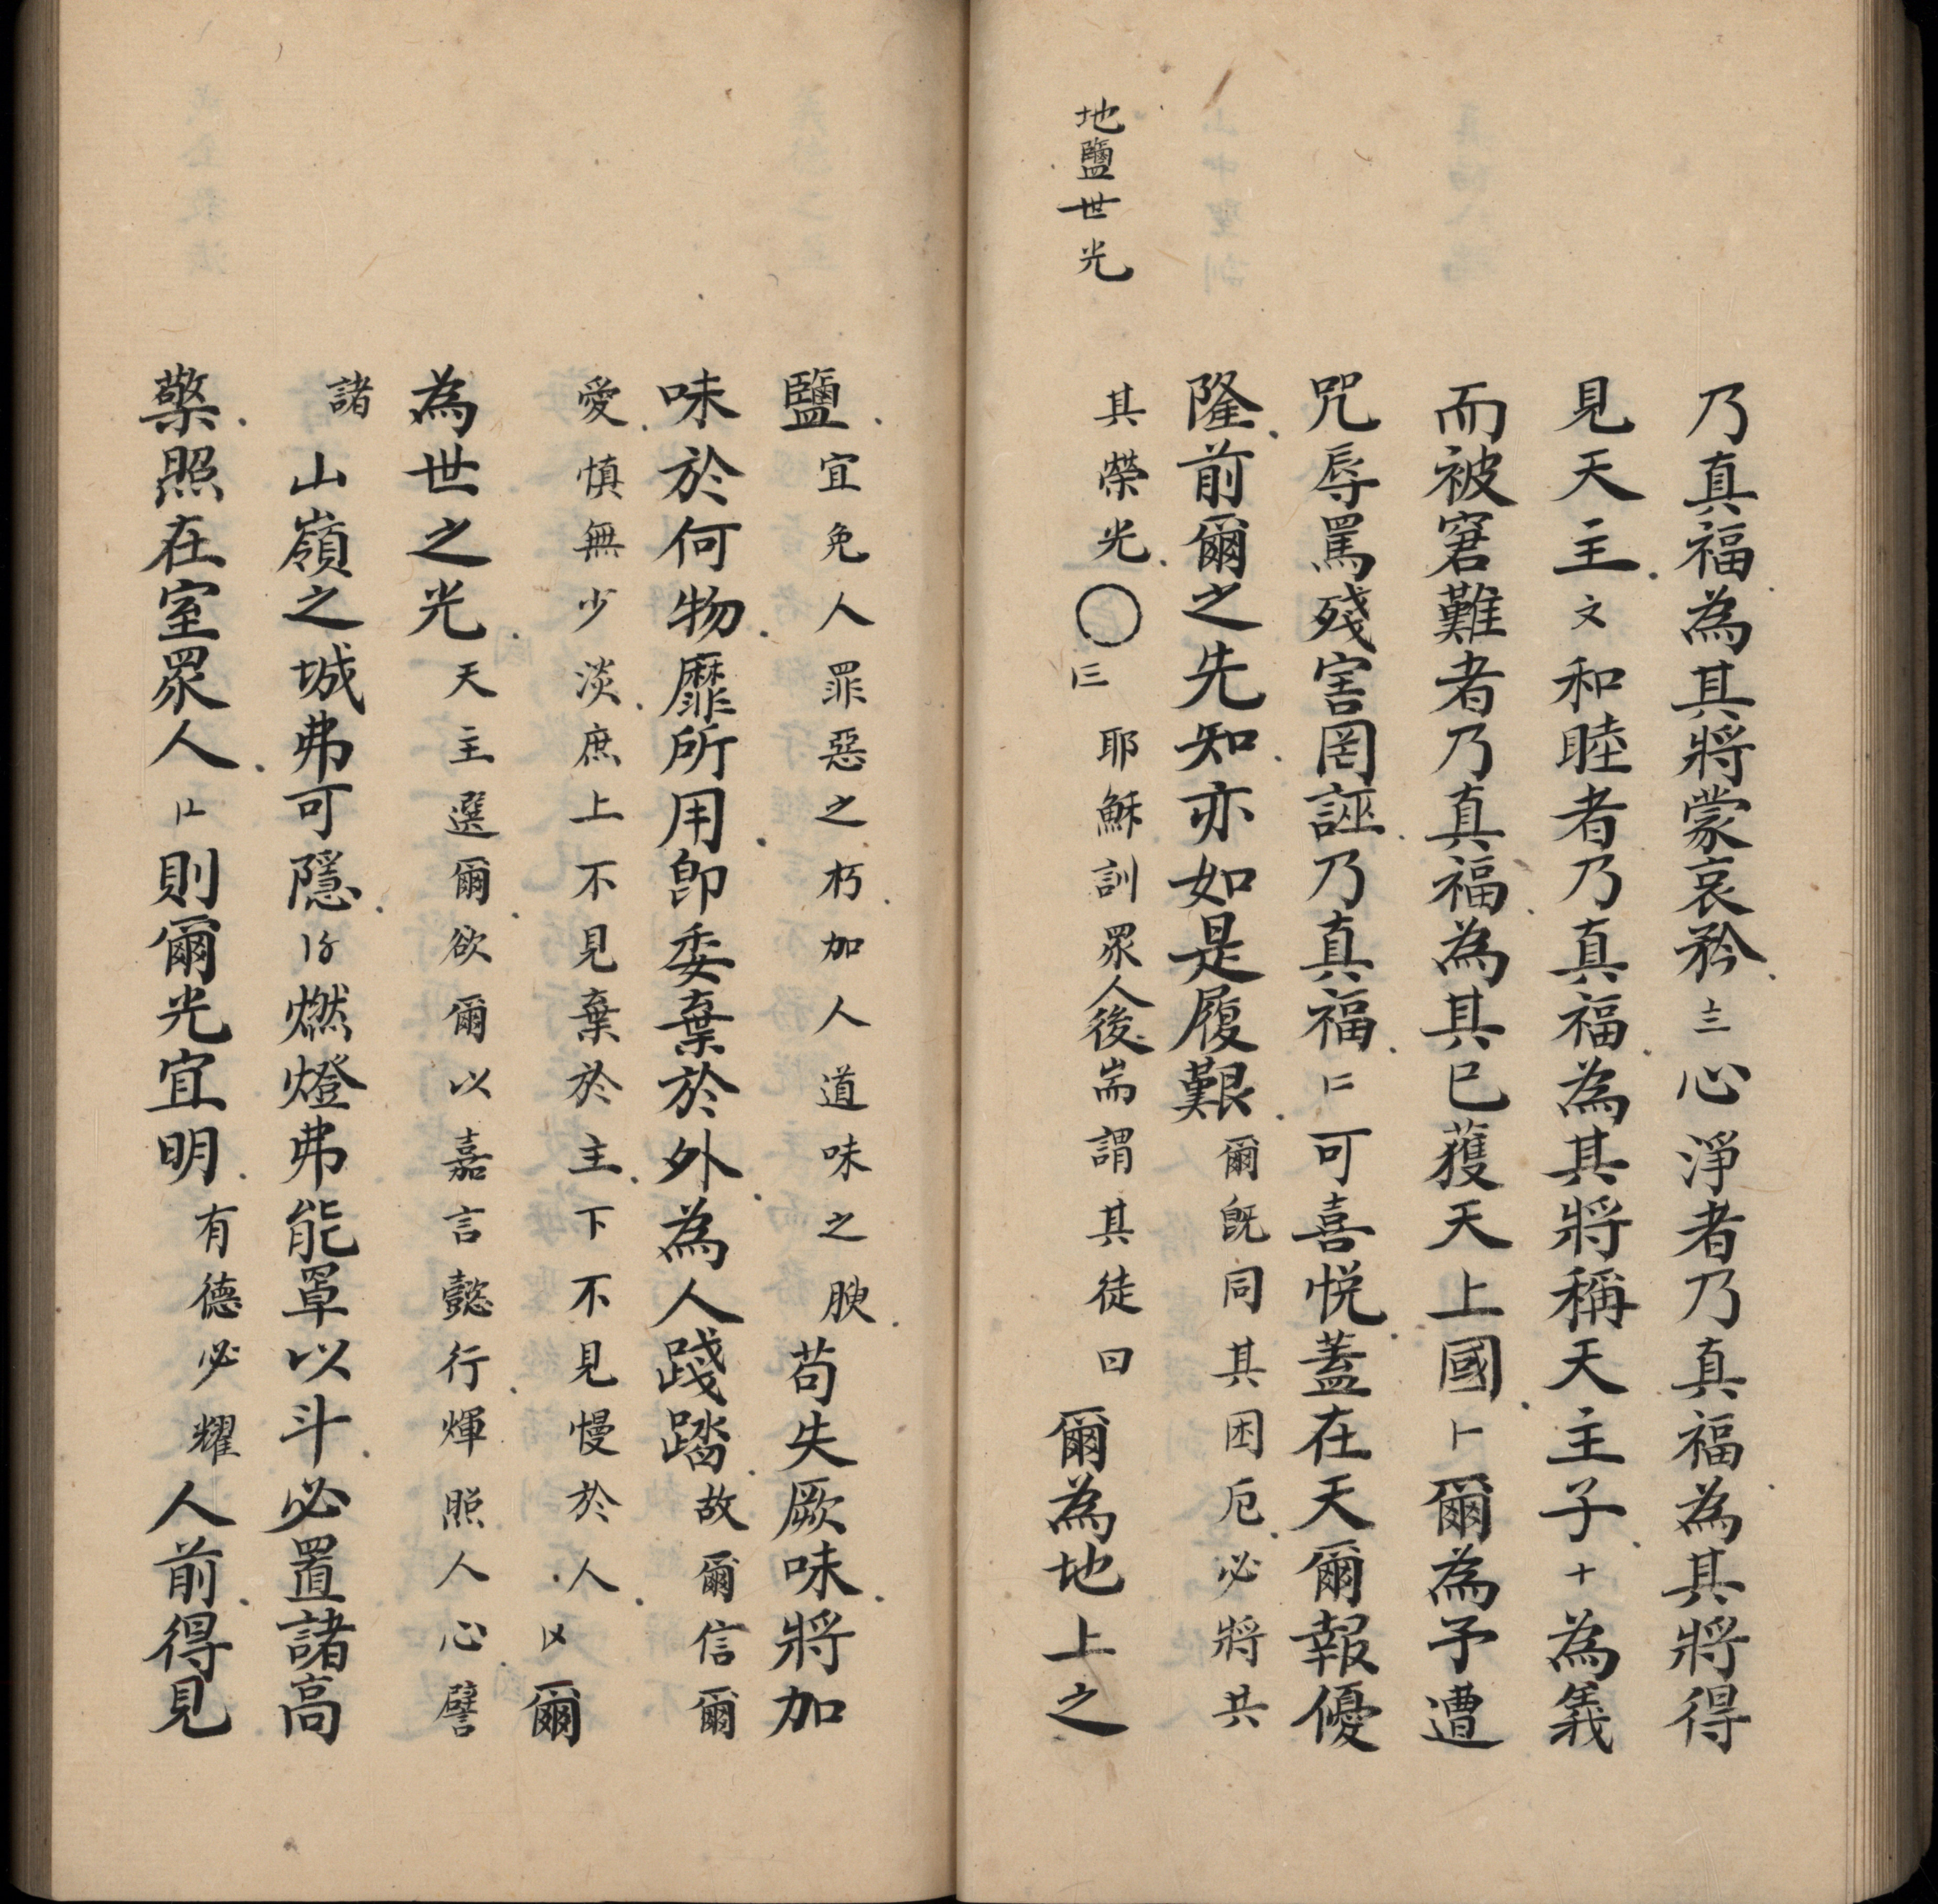 乃真福為其將蒙哀矜〨心淨者乃真福為其將得
見天主〩和睦者乃真福為其將稱天主子十為義
而被窘難者乃真福為其已獲天上國〡爾為予遭
咒辱罵殘害罔誣乃真福〢可喜悅蓋在天爾報優
隆前爾之先知亦如是履艱爾旣同其困厄必將共
地鹽世光
其榮光〇〣耶穌訓眾人後耑謂其徒曰爾為地上之
鹽宜免人罪惡之朽加人道味之腴苟失厥味將加
味於何物靡所用卽委棄於外為人踐踏故爾信爾
愛慎無少淡庶上不見棄於主下不見慢於人〤爾
為世之光天主選爾欲爾以嘉言懿行輝照人心譬
諸山嶺之城弗可隱〥燃燈弗能罩以斗必置諸高
檠照在室眾人〦則爾光宜明有德必耀人前得見